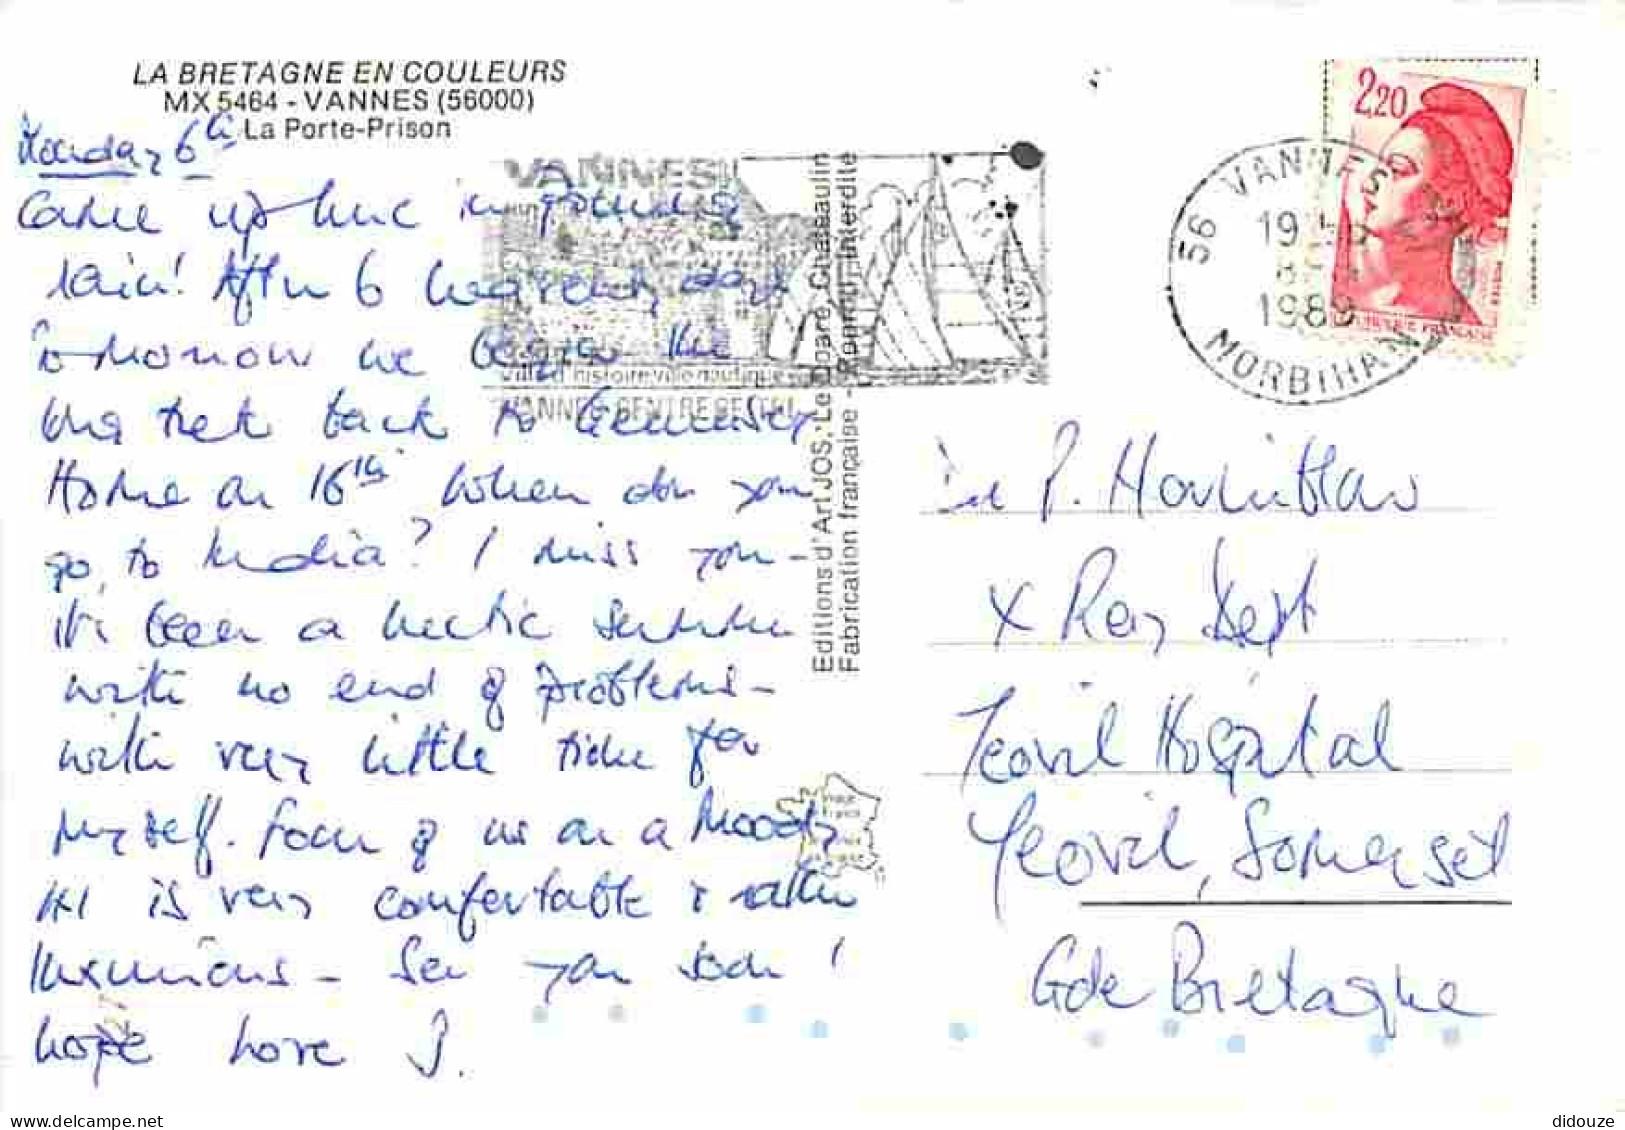 LA BRETAGNE EN COULEURS
MX 5464 - VANNES (56000)
La Porte-Prison
Monday 6th
Came up here in pouring
rain! After 6 heavenly days
Tomorrow we begin the
long trek back to Guernsey
Home on 16th When do you
go to India? I miss you -
it's been a hectic summer
with no end of problems -
with very little time for
myself. Four of us on a Moody
it is very comfortable & rather
luxurious - See you soon I
hope love J.
VANNES
Ville d'histoire ville nautique
VANNES CENTRE
Editions d'Art JOS, Le Doaré, Chateaulin
Fabrication française - Reprod. interdite
2,20
56 VANNES
19 H
8
1989
MORBIHAN
P.
X Ray Dept
Yeovil Hospital
Yeovil, Somerset
Gde Bretagne
didouze